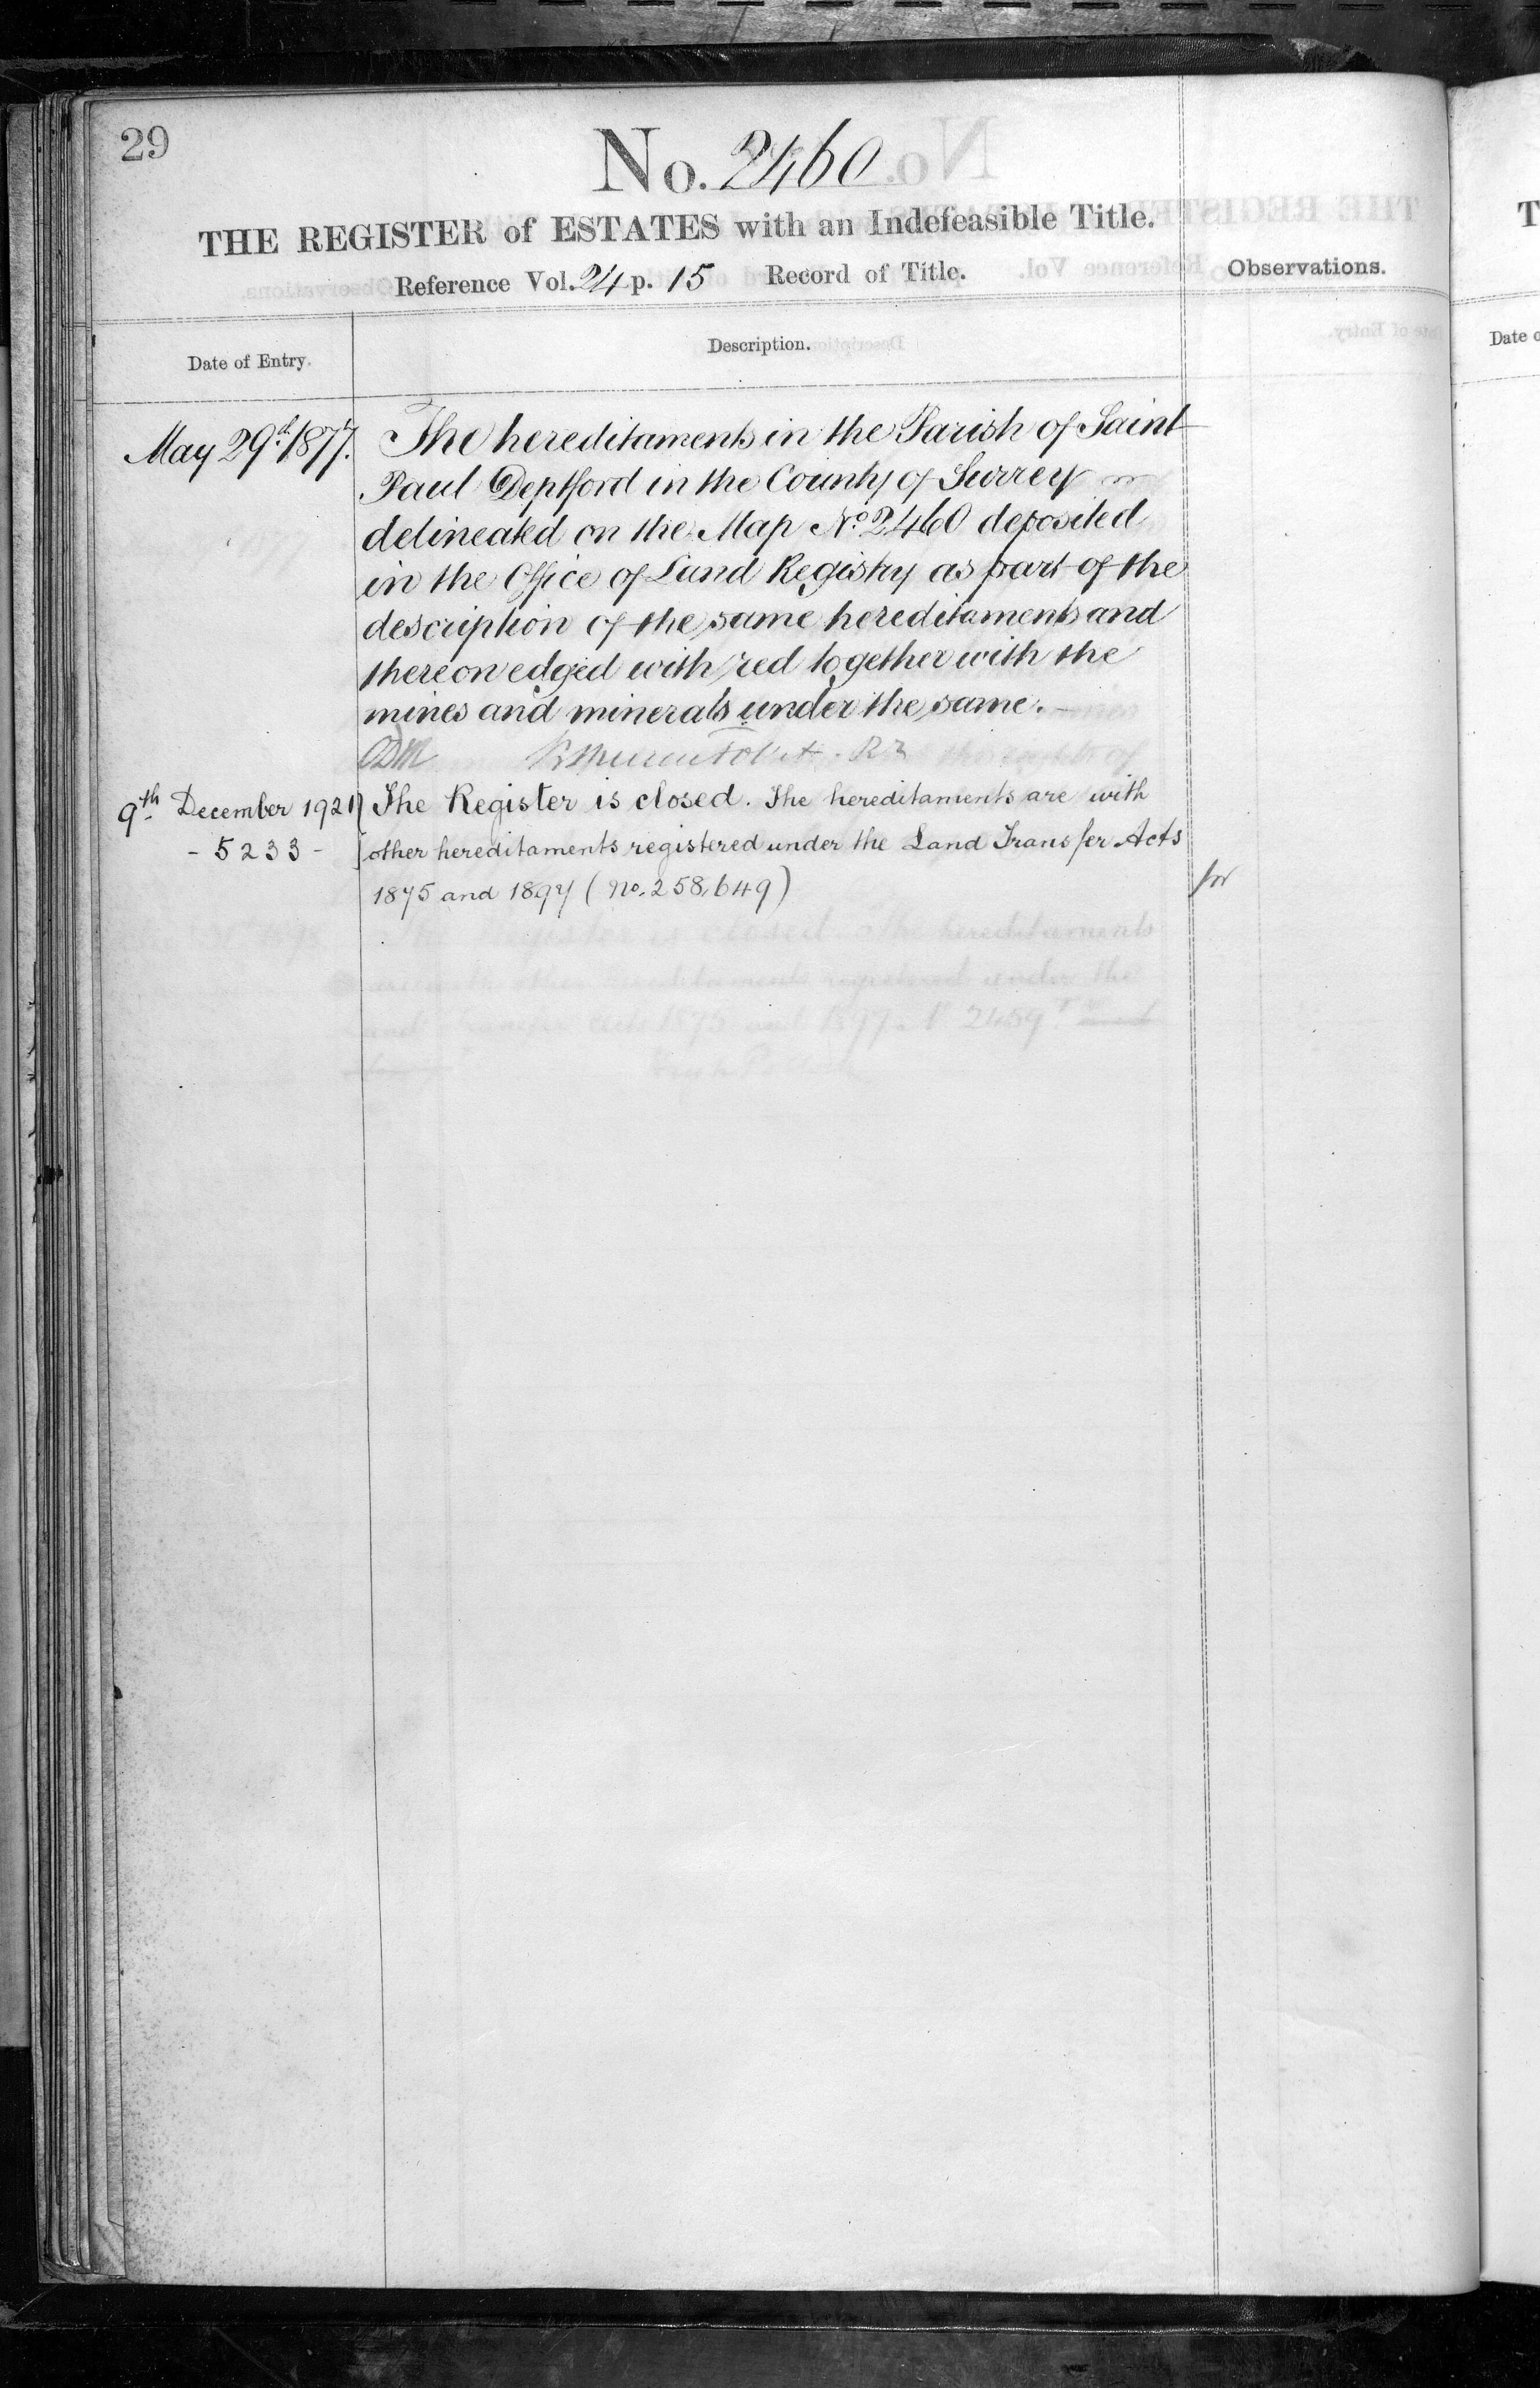 29
No. 2460
THE REGISTER of ESTATES with an Indefeasible Title.
Reference Vol. 24 p. 15 Record of Title.
Observations.
Date of Entry.
Description.
May 29th 1877.
The hereditaments in the Parish of Saint
Paul Deptford in the County of Surrey
delineated on the Map No. 2460 deposited
in the Office of Land Registry as part of the
description of the same hereditaments and
thereon edged with red together with the
mines and minerals under the same.
9th December 1921
- 5233 -
The Register is closed. The hereditaments are with
other hereditaments registered under the Land Transfer Acts
1875 and 1897 (No. 258,649)
T
Date o